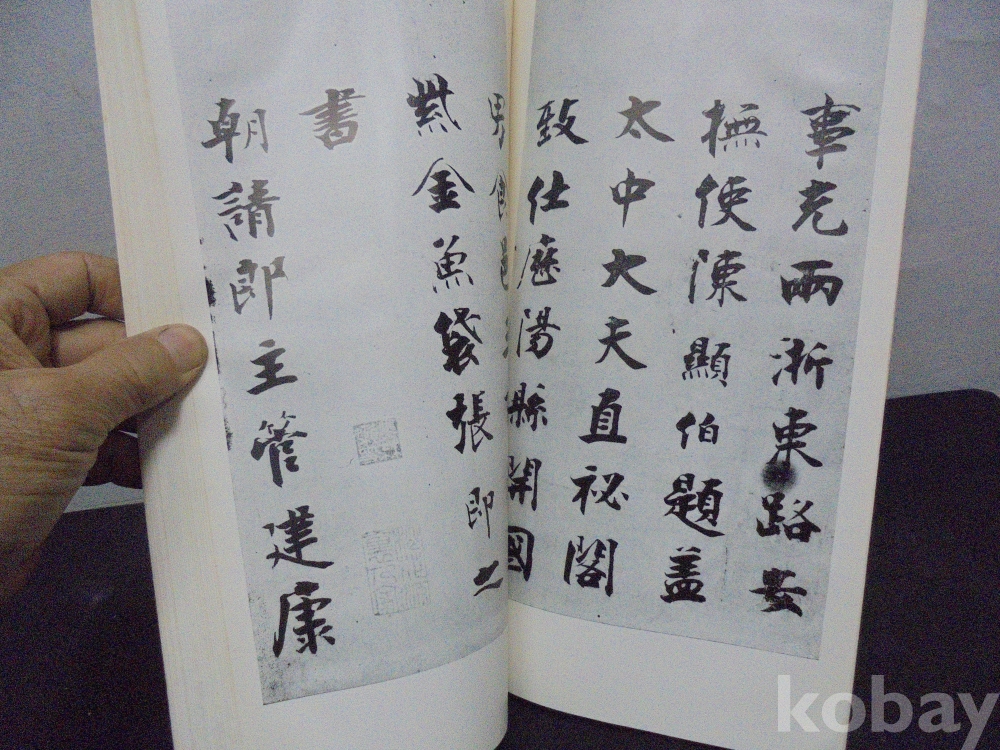 事充兩浙東路安
撫使陳顯伯題盖
太中大夫直祕閣
致仕歷陽縣開國
男食邑
紫金魚袋張即之
書
朝請郎主管建康
kobay